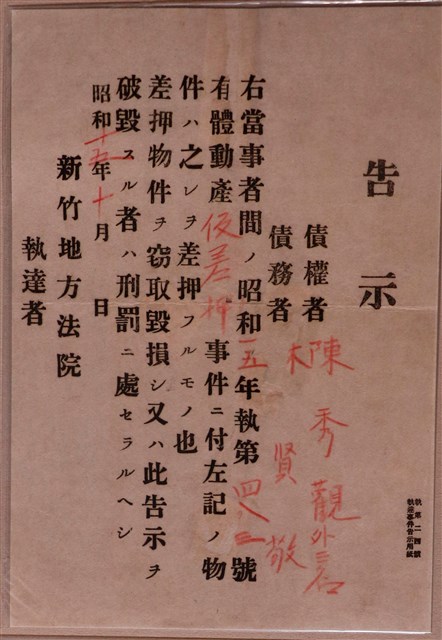 執第二四號
執達事件告示用紙
告示
債權者 陳秀觀外三名
債務者 賢敬
右當事者間ノ昭和一五年執第四八三號
有體動產仮差押事件ニ付左記ノ物
件ハ之レヲ差押フルモノ也
差押物件ヲ窃取毀損シ又ハ此告示ヲ
破毀スル者ハ刑罰ニ處セラルヘシ
昭和十五年十月 日
新竹地方法院
執達者